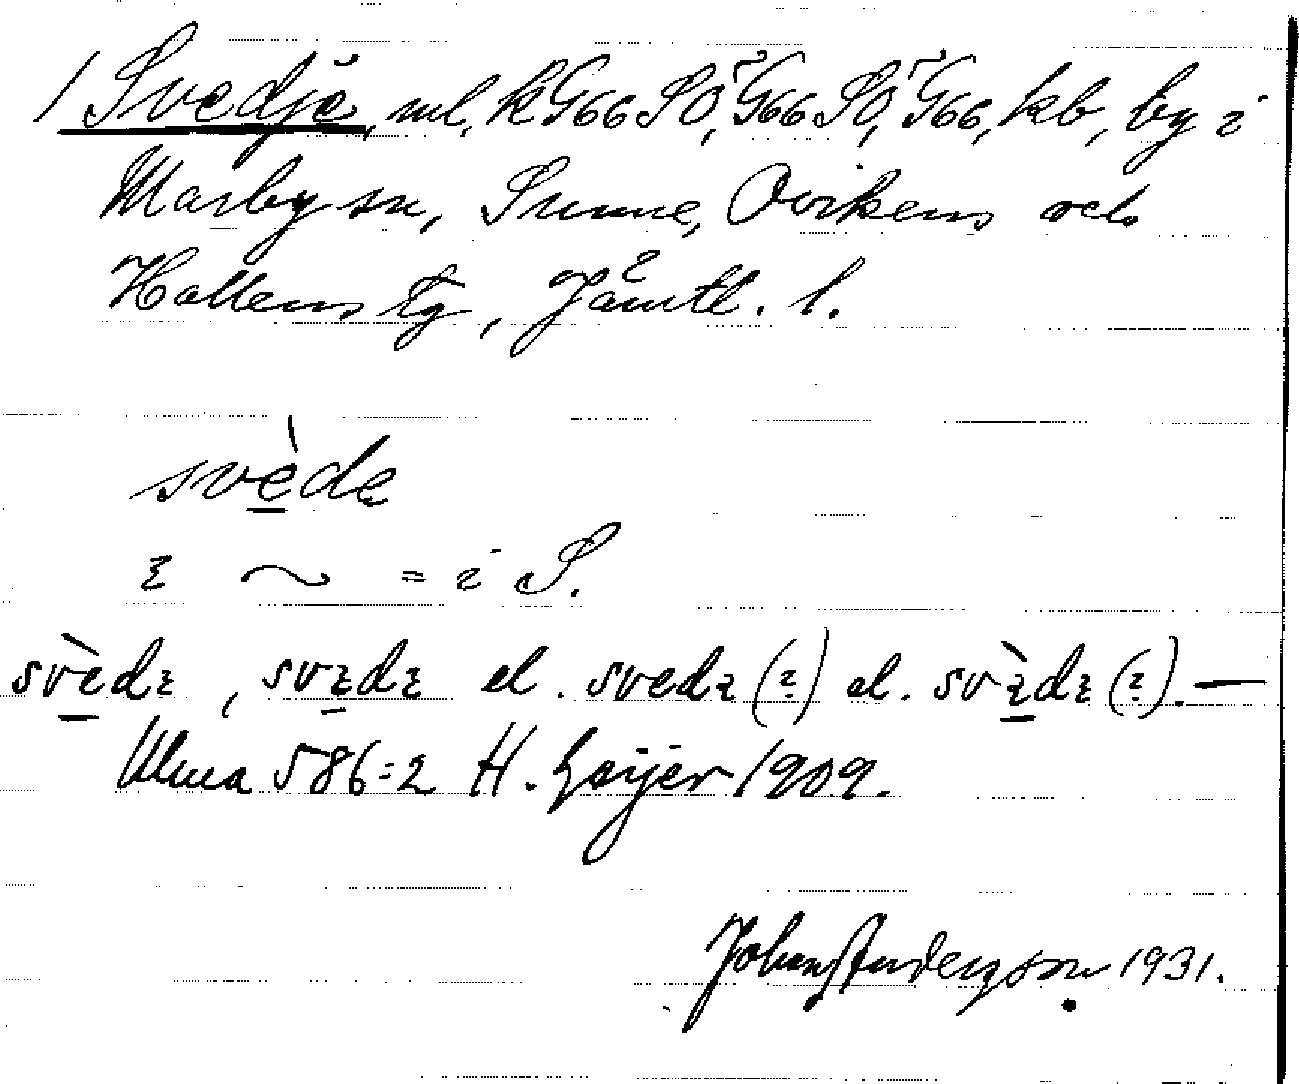 1 Svedje, ml, kG66 SO, G66 SO, G66, kb, by i
Marby sn, Sunne, Ovikens och
Hallens tg, Jämtl. l.
svède
ε ~ = i S.
svèdε, svεdε el. svedε(ε) el. svὲdε(ε). —
Ulma 586:2 H. Geijer 1909.
Johan Anderzson 1931.